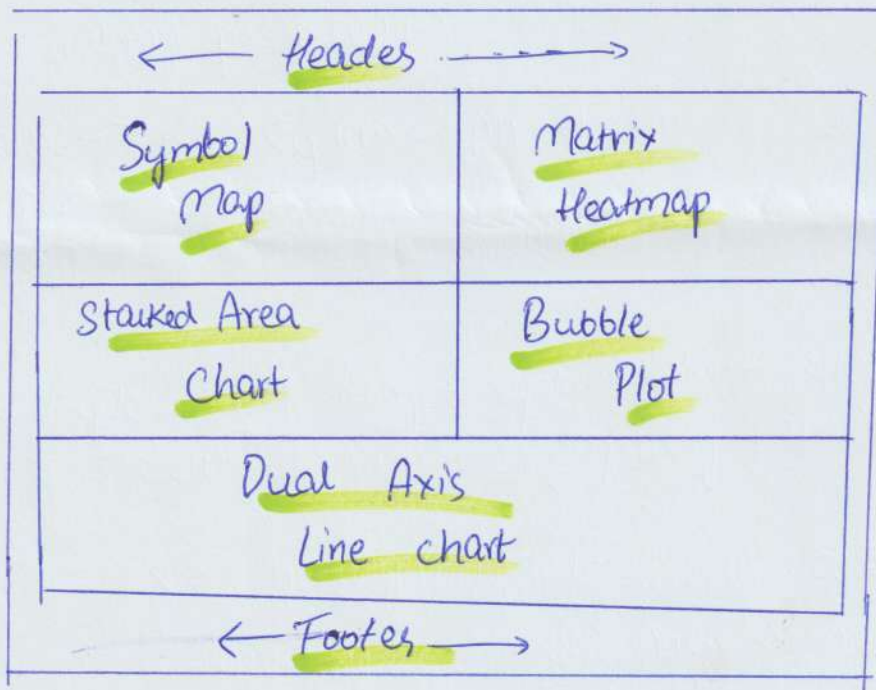 Header
Symbol
Map
Matrix
Heatmap
Stacked Area
Chart
Bubble
Plot
Dual Axis
Line chart
Footer